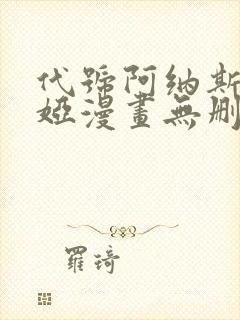 代號阿纳斯
婭漫畫無刪
羅琦